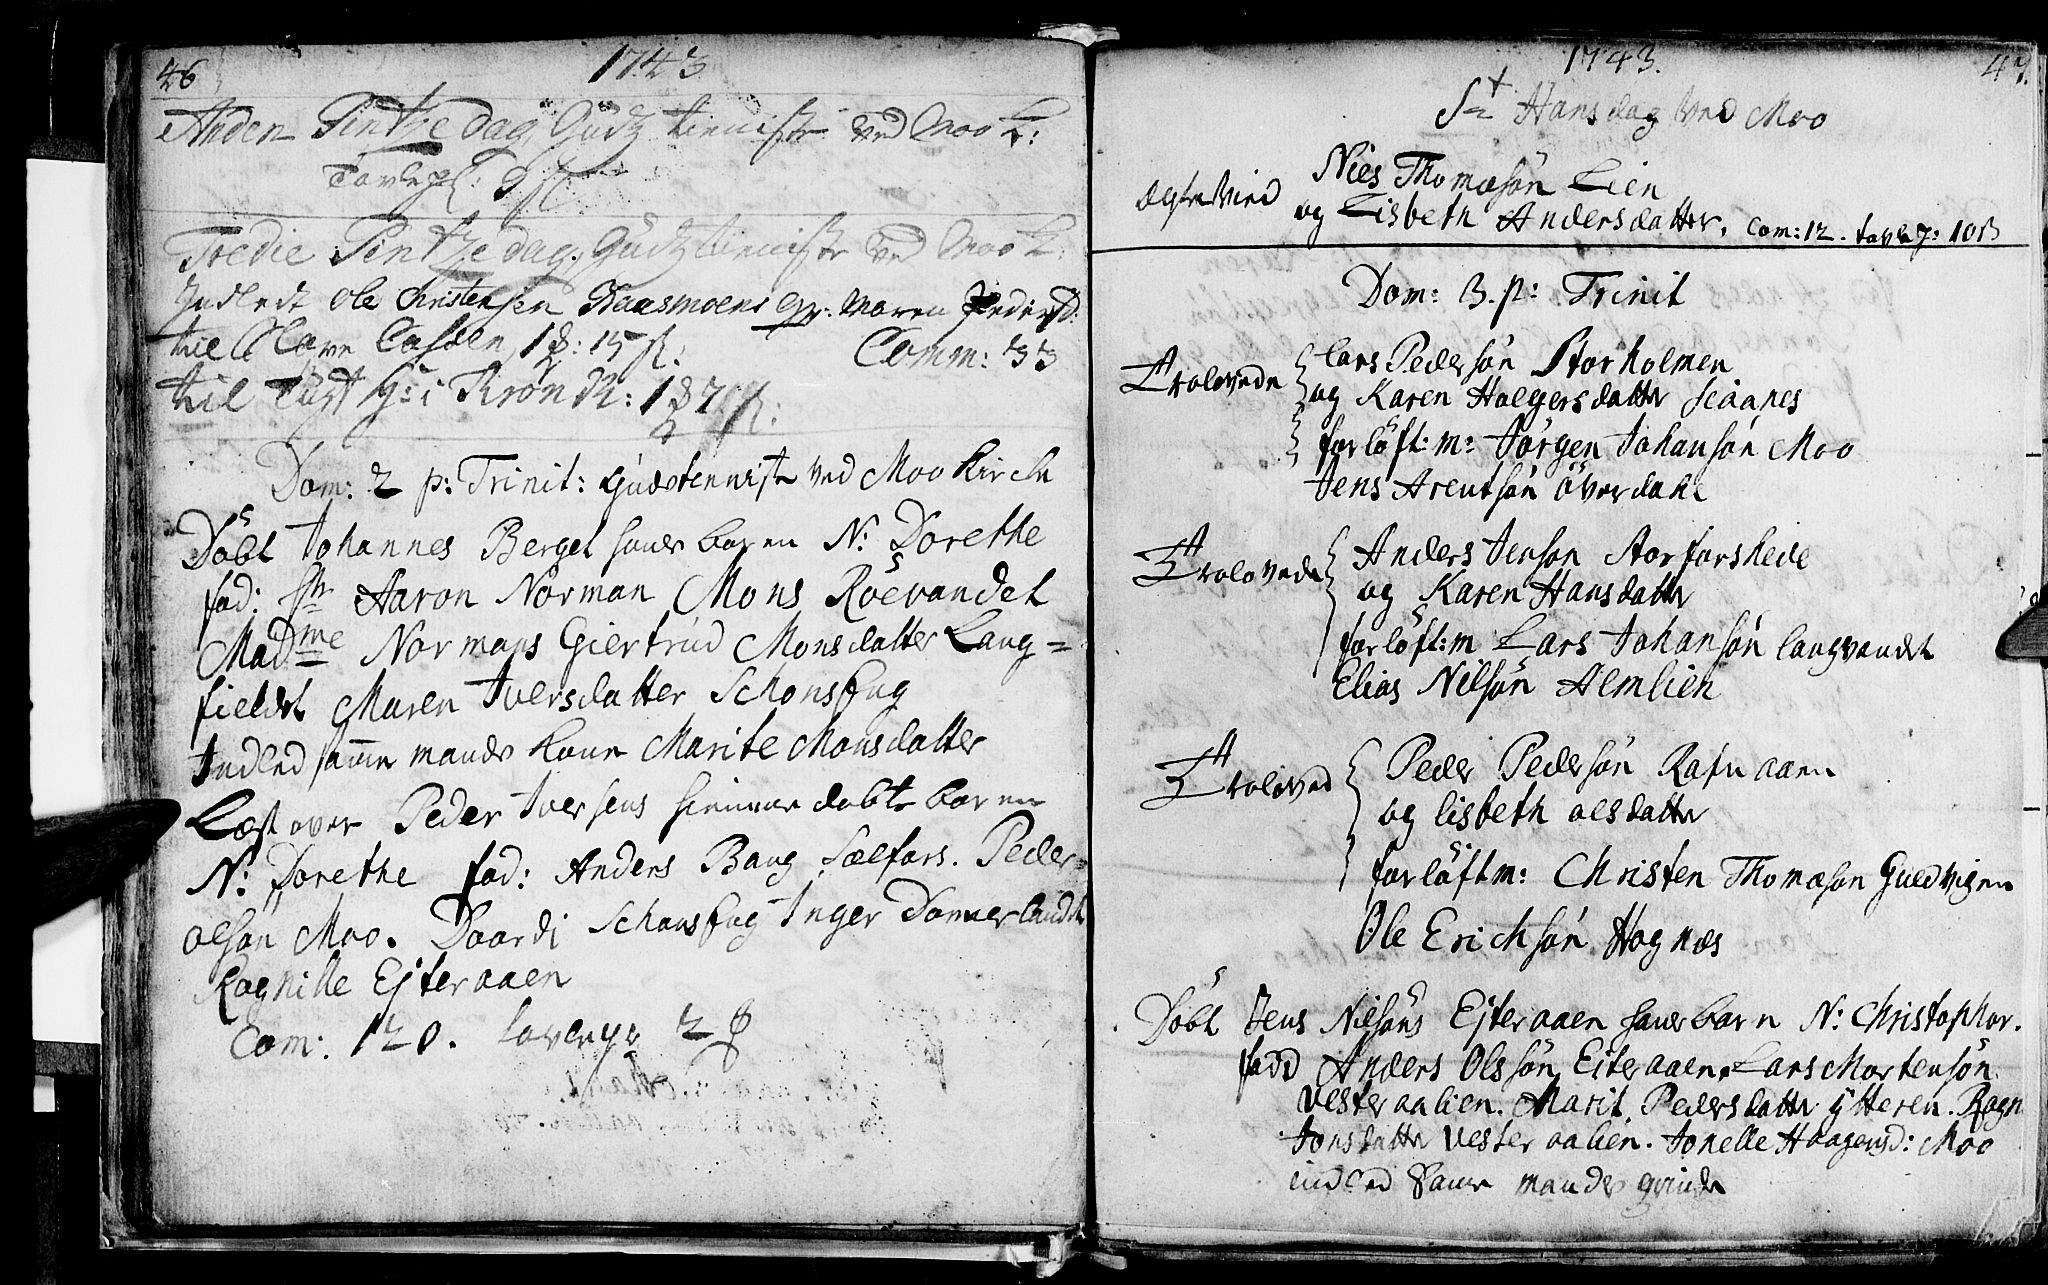 46
1743
Anden Pintzedag, Gudz tieniste ved Moo K:
Tavlep: 9 ß
Tredie Pintzedag, Gudz tieniste ved Moo K:
Indledt Ole Christensen Haasmoens qv: Maren Pedersd:
til Tavlen 15 ß. Comm: 33
til i Trond:
Dom: 2 p: Trinit: Gudstenniste ved Moo Kirche
Döbt Johannes Berget hans barn N: Dorethe
fad: Sr Aaron Norman Mons Röevandet
Madme Normans Giertrud Monsdatter Lang=
fieldet Maren Iversdatter Schonseng
Indled samme mands Kone Marite Monsdatter
Læst over Peder Iversens hiemme döbte barn
N: Dorethe fad: Anders Bang Selfors. Peder
olsön Moo. Daardi Schonseng Inger Dönnerlandet
Ragnille Ejteraaen
Com: 120. tavlep:
1743.
47.
St Hans dag ved Moo
ægtevied Niels Thomæsön Lien
og Lisbeth Andersdatter. Com: 12. tavlep: 10 ß
Dom: 3. p: Trinit
Trolovede Lars Pedersön Storholmen
og Karen Holgersdatter
forlöft: m: Jörgen Johansön Moo
Jens Arentsön Överdahl
Trolovede Anders Jensön Storforshede
og Karen Hansdatter
forlöft: m Lars Johansön langvandet
Elias Nilsön Almlien
Troloved Peder Pedersön Rafnaaen
og lisbeth olsdatter
forlöft m: Christen Thomæsön Guldvigen
Ole Erichsön Hognæs
Döbt Jens Nilsöns Ejteraaen hans barn N: Christophor.
fadd Anders Olssön Eiteraaen. Lars Mortensön
Vesteraalien. Marit Pedersdatter ÿtteren. Ragn
Jonsdatter Vesteraalien. Jonelle Haagensd: Moo
indled samme mands qvinde